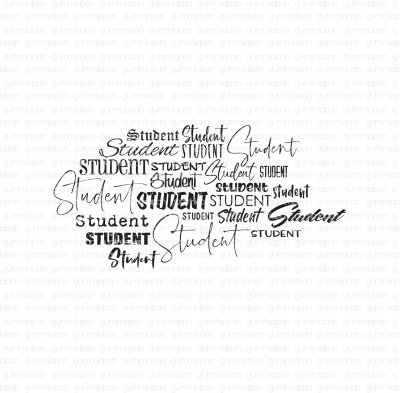 Student Student
Student STUDENT Student
STUDENT STUDENT Student STUDENT
Student STUDENT Student
Student STUDENT STUDENT
Student STUDENT Student Student
STUDENT Student STUDENT
Student
gummiapan